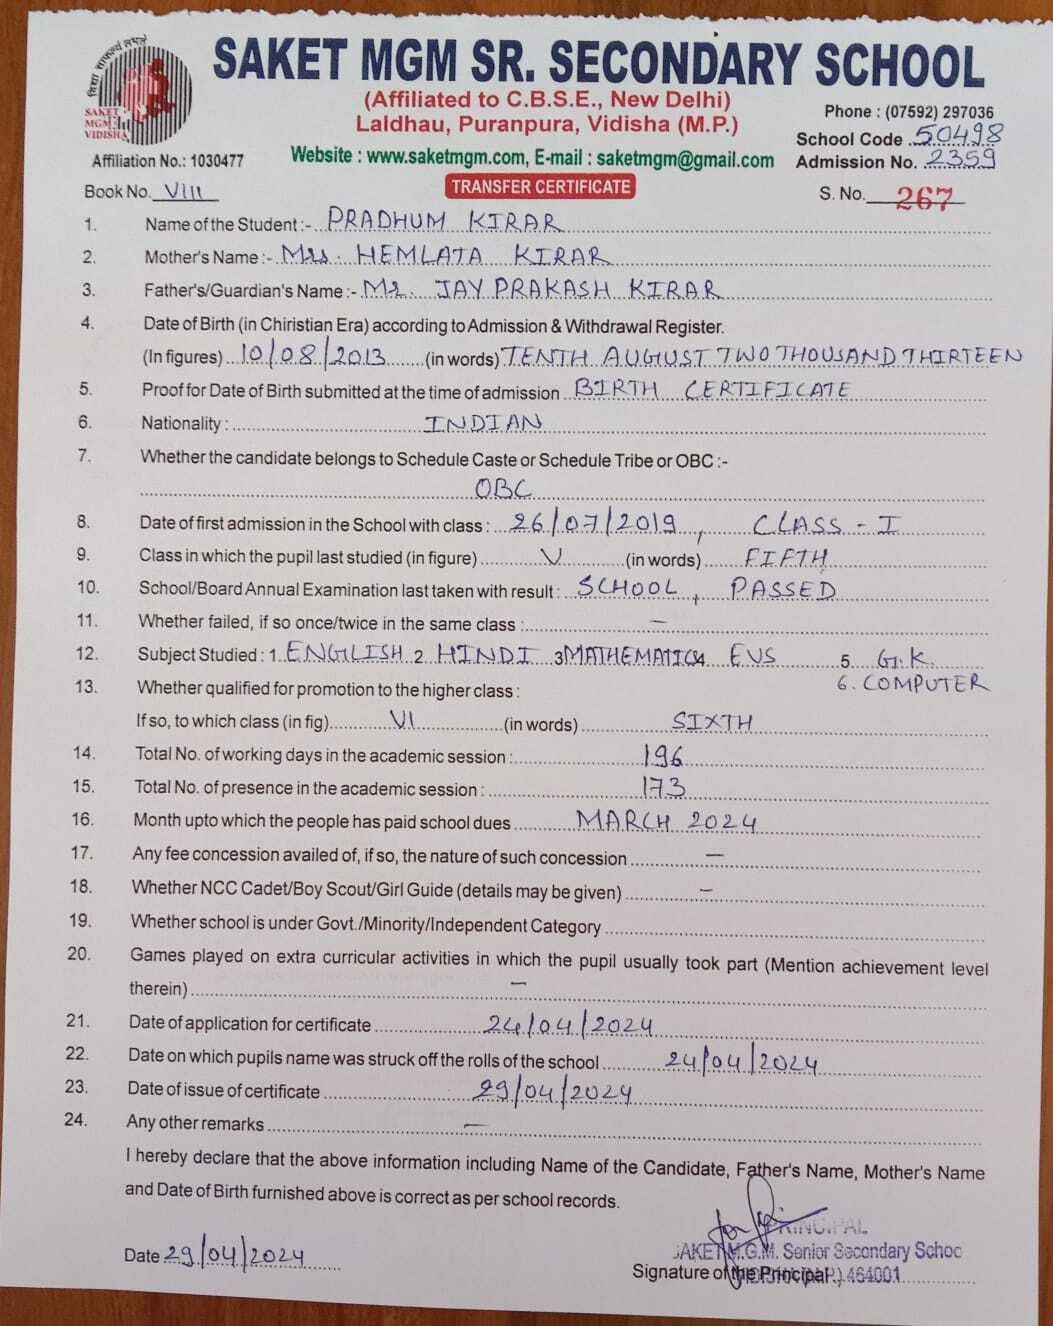 विद्या साफल्यं लभते
SAKET
MGM
VIDISHA
SAKET MGM SR. SECONDARY SCHOOL
(Affiliated to C.B.S.E., New Delhi)
Laldhau, Puranpura, Vidisha (M.P.)
Phone : (07592) 297036
School Code 50498
Affiliation No.: 1030477 Website : www.saketmgm.com, E-mail : saketmgm@gmail.com Admission No. 2359
Book No. VIII TRANSFER CERTIFICATE S. No. 267
1. Name of the Student :- PRADHUM KIRAR
2. Mother's Name :- Mrs. HEMLATA KIRAR
3. Father's/Guardian's Name :- Mr. JAY PRAKASH KIRAR
4. Date of Birth (in Chiristian Era) according to Admission & Withdrawal Register.
(In figures) 10/08/2013 (in words) TENTH AUGUST TWO THOUSAND THIRTEEN
5. Proof for Date of Birth submitted at the time of admission BIRTH CERTIFICATE
6. Nationality : INDIAN
7. Whether the candidate belongs to Schedule Caste or Schedule Tribe or OBC :-
OBC
8. Date of first admission in the School with class : 26/07/2019, CLASS - I
9. Class in which the pupil last studied (in figure) V (in words) FIFTH
10. School/Board Annual Examination last taken with result : SCHOOL, PASSED
11. Whether failed, if so once/twice in the same class : -
12. Subject Studied : 1 ENGLISH 2 HINDI 3 MATHEMATICS 4 EVS 5. G.K.
6. COMPUTER
13. Whether qualified for promotion to the higher class :
If so, to which class (in fig) VI (in words) SIXTH
14. Total No. of working days in the academic session : 196
15. Total No. of presence in the academic session : 173
16. Month upto which the people has paid school dues MARCH 2024
17. Any fee concession availed of, if so, the nature of such concession -
18. Whether NCC Cadet/Boy Scout/Girl Guide (details may be given) -
19. Whether school is under Govt./Minority/Independent Category
20. Games played on extra curricular activities in which the pupil usually took part (Mention achievement level
therein) -
21. Date of application for certificate 24/04/2024
22. Date on which pupils name was struck off the rolls of the school 24/04/2024
23. Date of issue of certificate 29/04/2024
24. Any other remarks -
I hereby declare that the above information including Name of the Candidate, Father's Name, Mother's Name
and Date of Birth furnished above is correct as per school records.
PRINCIPAL
SAKET M.G.M. Senior Secondary Schoo
Date 29/04/2024
Signature of the Principal 464001